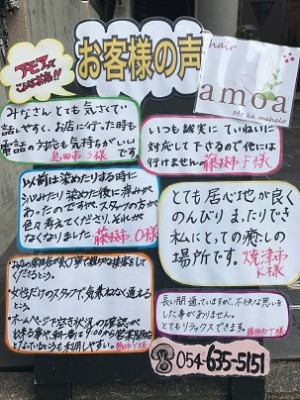 アモアって
こんなお店!!
お客様の声
hair
amoa
Me ka mahalo
みなさんとても気さくで
話しやすく、お店に行った時も
電話の対応も気持ちがいい
です
島田市 S様
いつも誠実に ていねいに
対応して下さるので他には
行けません。藤枝市 F様
以前は染めたりする時に
しみたり染めた後に痒みが
あったのですが、スタッフの方が
色々考えてくださり、それが
なくなりました。藤枝市 O様
とても居心地が良く
のんびり まったりでき
私にとっての癒しの
場所です。焼津市
K様
くださるところ。
・女性だけのスタッフで、気兼ねなく通える
ところ。
・ホームページで空き状況の確認が
長い間通っていますが、不快な思いを
した事がありません。
とてもリラックスできます。
054-635-5151